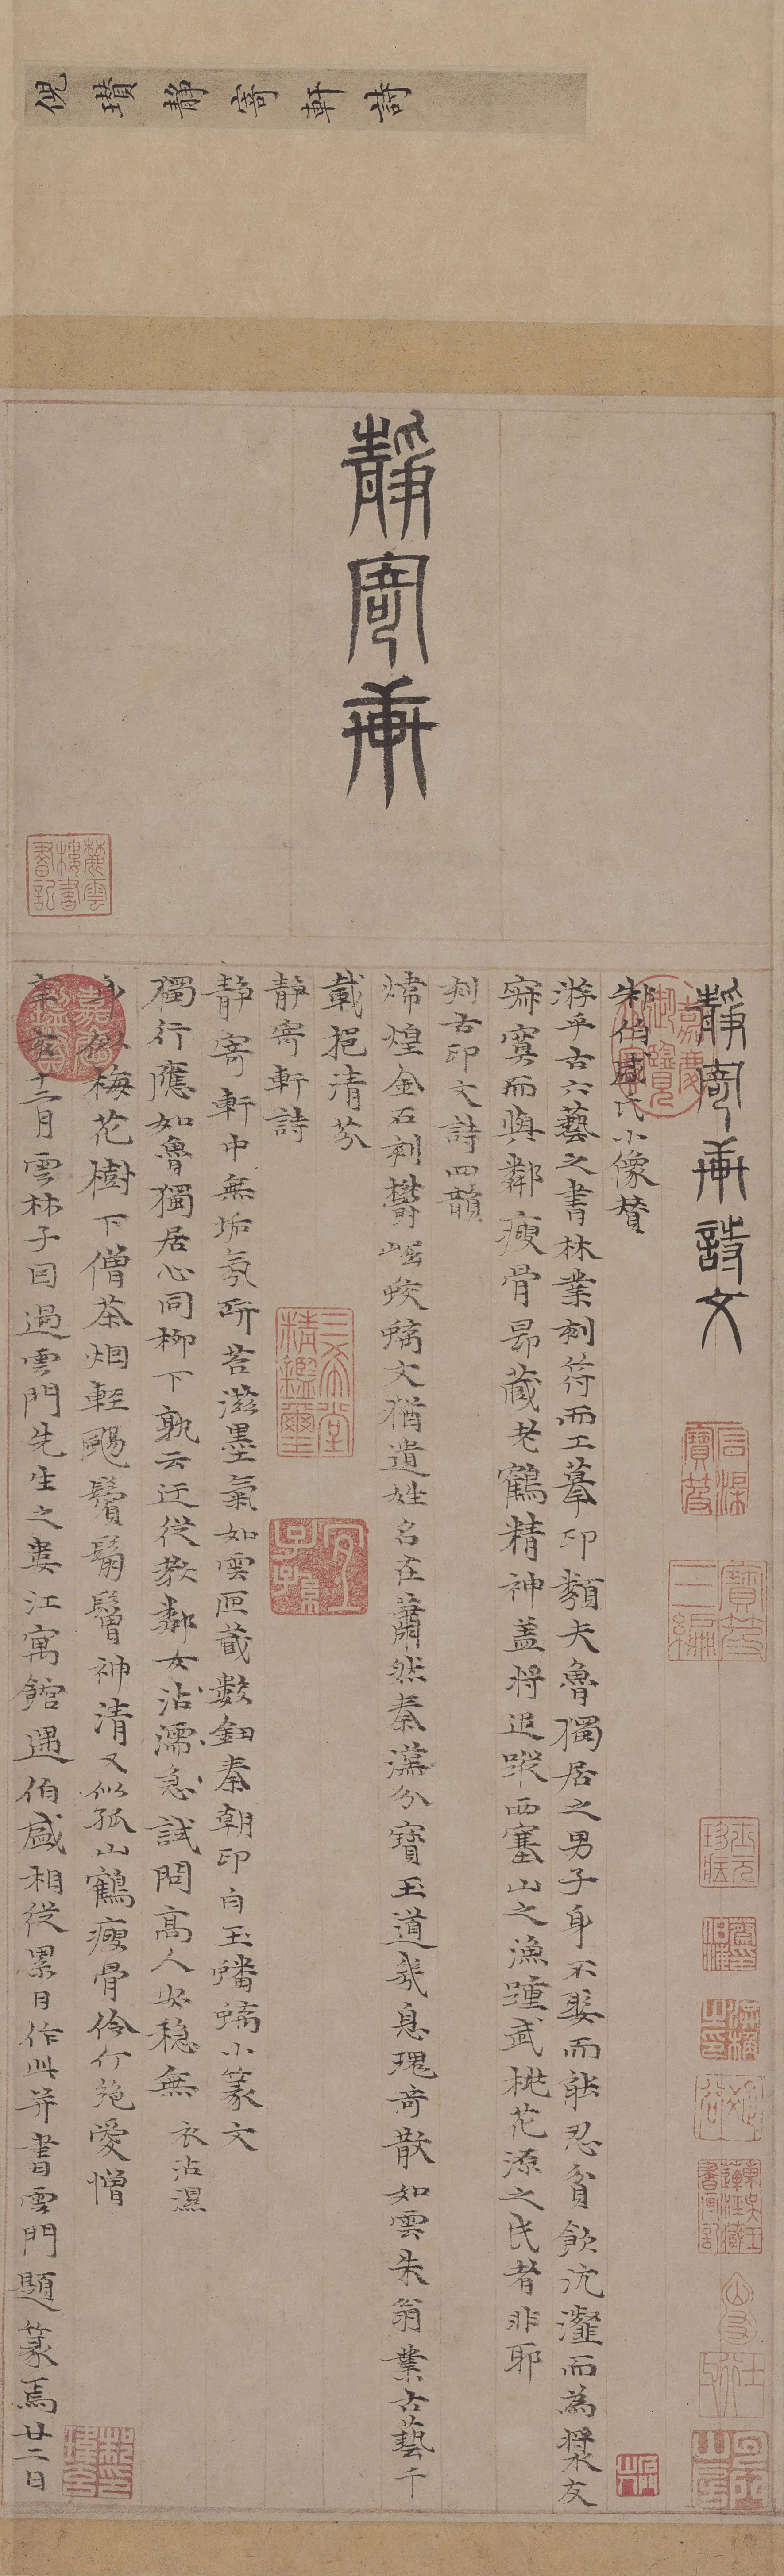 倪瓚靜寄軒詩
靜寄軒
靜寄軒詩文
朱伯盛氏小像贊
游乎古六藝之書林業刻符而工摹印類夫魯獨居之男子身不娶而能忍貧飲沆瀣而為漿友
寂寞而與鄰瘦骨昂藏老鶴精神蓋將追蹤西塞山之漁踵武桃花源之民者非耶
刻古印文詩四韻
煒煌金石刻鬱崛蛟螭文猶遺姓名在蕭然秦漢分寶玉道氣息瑰奇散如雲朱翁業古藝千
載挹清芬
靜寄軒詩
靜寄軒中無垢氛研苔滋墨氣如雲匣藏數鈕秦朝印白玉蟠螭小篆文
獨行應如魯獨居心同柳下孰云迂從教鄰女沾濡急試問高人安穩無 衣沾濕
梅花樹下僧茶烟輕颺鬢鬅鬙神清又似孤山鶴瘦骨伶仃絕愛憎
辛亥十二月雲林子因過雲門先生之婁江寓館遇伯盛相從累日作此并書雲門題篆焉廿二日
麓雲樓書畫記
嘉慶御覽之寶
嘉慶鑑賞
三希堂精鑑璽
宜子孫
石渠寶笈
寶笈三編